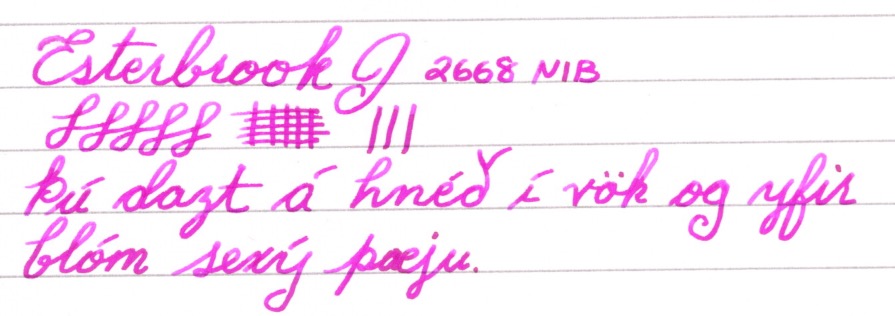 Esterbrook J 2668 NIB
þú dazt á hnéð í vök og yfir
blóm sexý pæju.